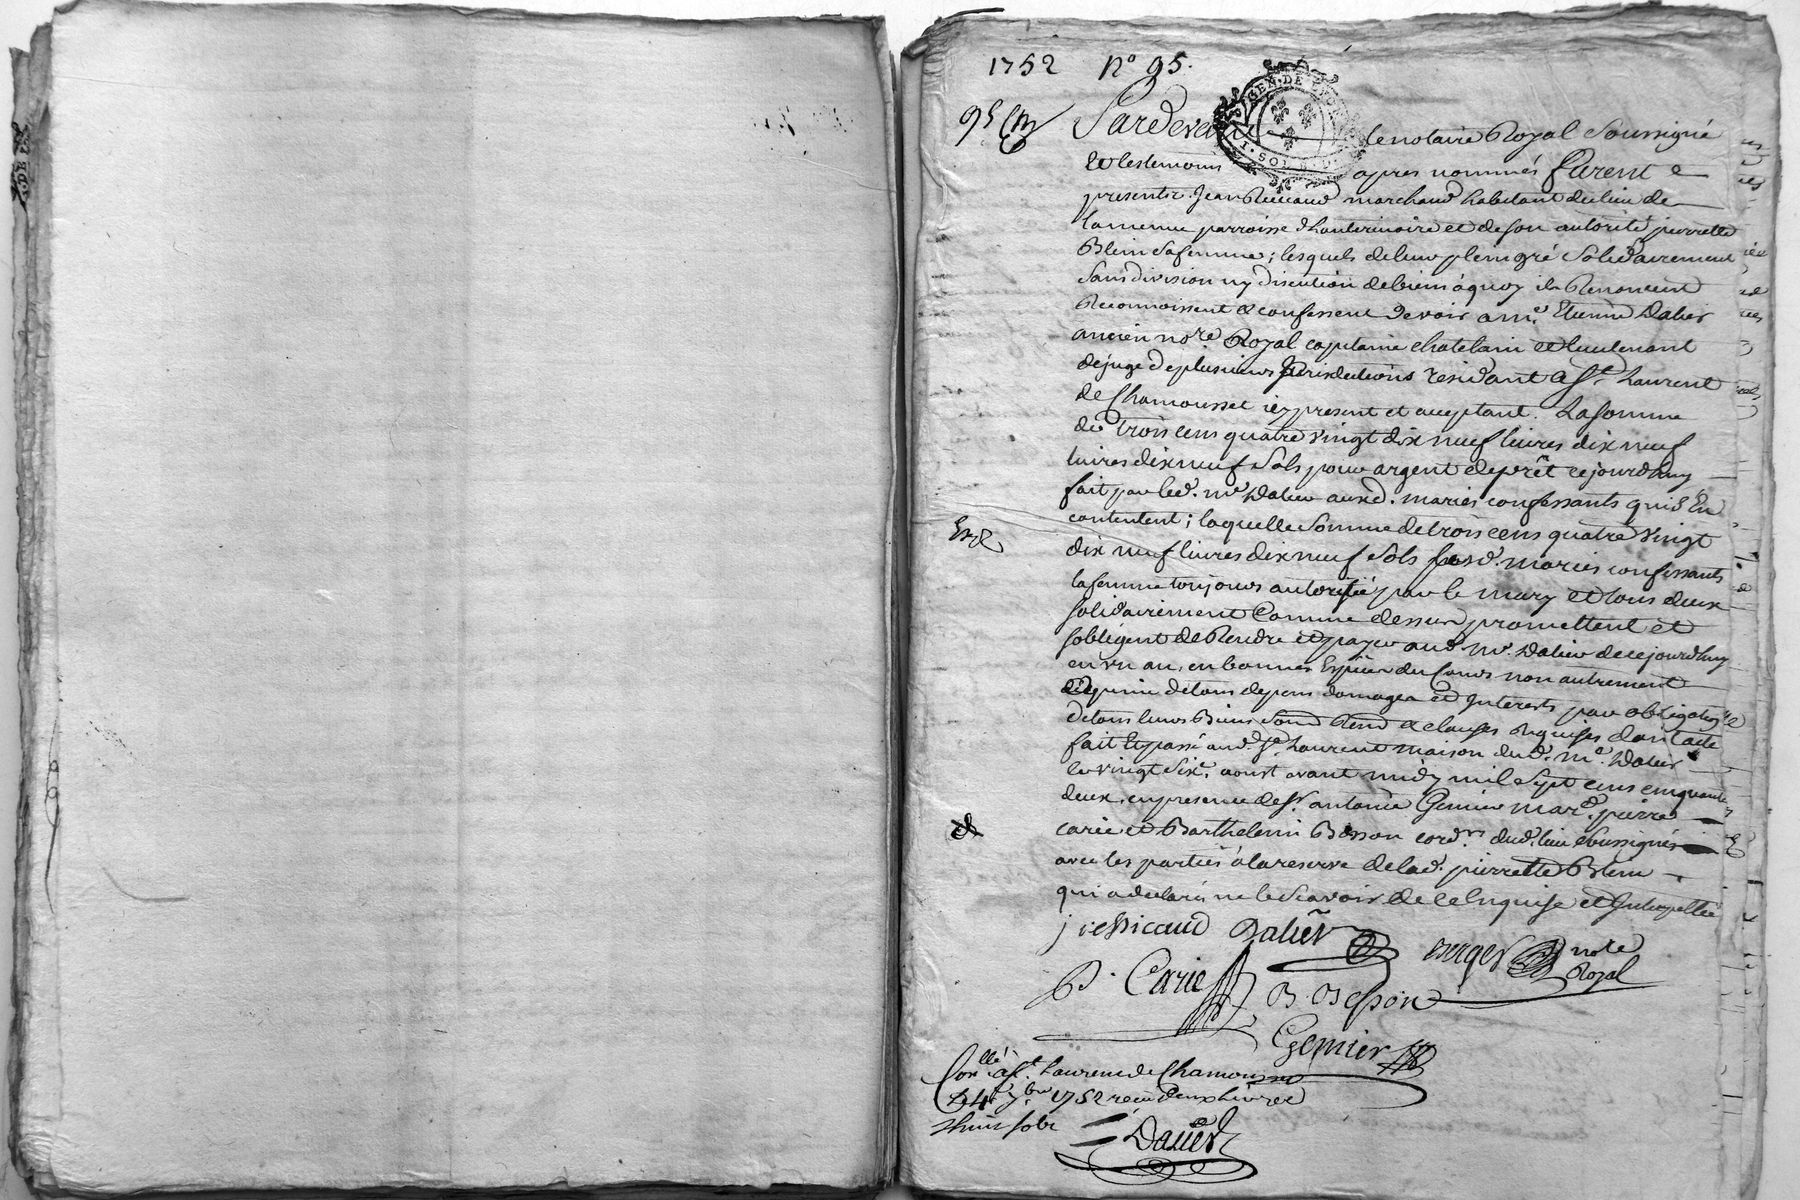 1752 No 95.
GEN. DE LYON
SOLS
Pardevant le notaire Royal Soussigné
et les temoins apres nommés furent
presents Jean Ricaud marchand habitant du lieu de
parroisse d'hauterivoire et de son autorité pierrette
Blein sa femme; lesquels de leur plein gré Solidairement
Sans division ny discution de biens a quoy ils Renoncent
Reconnoissent & confessent devoir a me. Etienne Dalier
ancien nore Royal capitaine chatelain et lieutenant
de juge de plusieurs Jurisdictions residant a St. Laurent
de Chamousset icy present et acceptant. La Somme
de trois cens quatre vingt dix neuf livres dix neuf
livres dix neuf Sols pour argent de prêt cejourdhuy
fait par led. me Dalier auxd. mariés confessants qui s'En
contentent; laquelle Somme de trois cens quatre vingt
dix neuf livres dix neuf Sols lesd. mariés confessants
la femme toujours autorisée par le mary et tous deux
solidairement Comme dessus promettent et
sobligent de Rendre et payer aud. me. Dalier de cejourdhuy
en un an, en bonnes Espèces du Cours non autrement
a peine de tous depens domages et Interests par obligation
de tous leurs Biens & clauses Requises dont acte
fait Et passé aud. St. Laurent maison dud. me. Dalier
le vingt Six. aoust avant midy mil Sept cens cinquante
deux, en presence de Sr. antoine Gemier mard. pierre
carie et Barthelemi Besson cordrs dud. lieu Soussignés
avec les parties a la reserve de lad. pierrette Blein
qui a declaré ne le Scavoir de ce Enquise et Interpellée
j Ricaud Dalier Berger nore
Royal
P. Carie B. Besson
Gemier
Conllé a St. Laurent de Chamousset
le 4e 7bre 1752 reçu deux livres
huit sols
Dalier